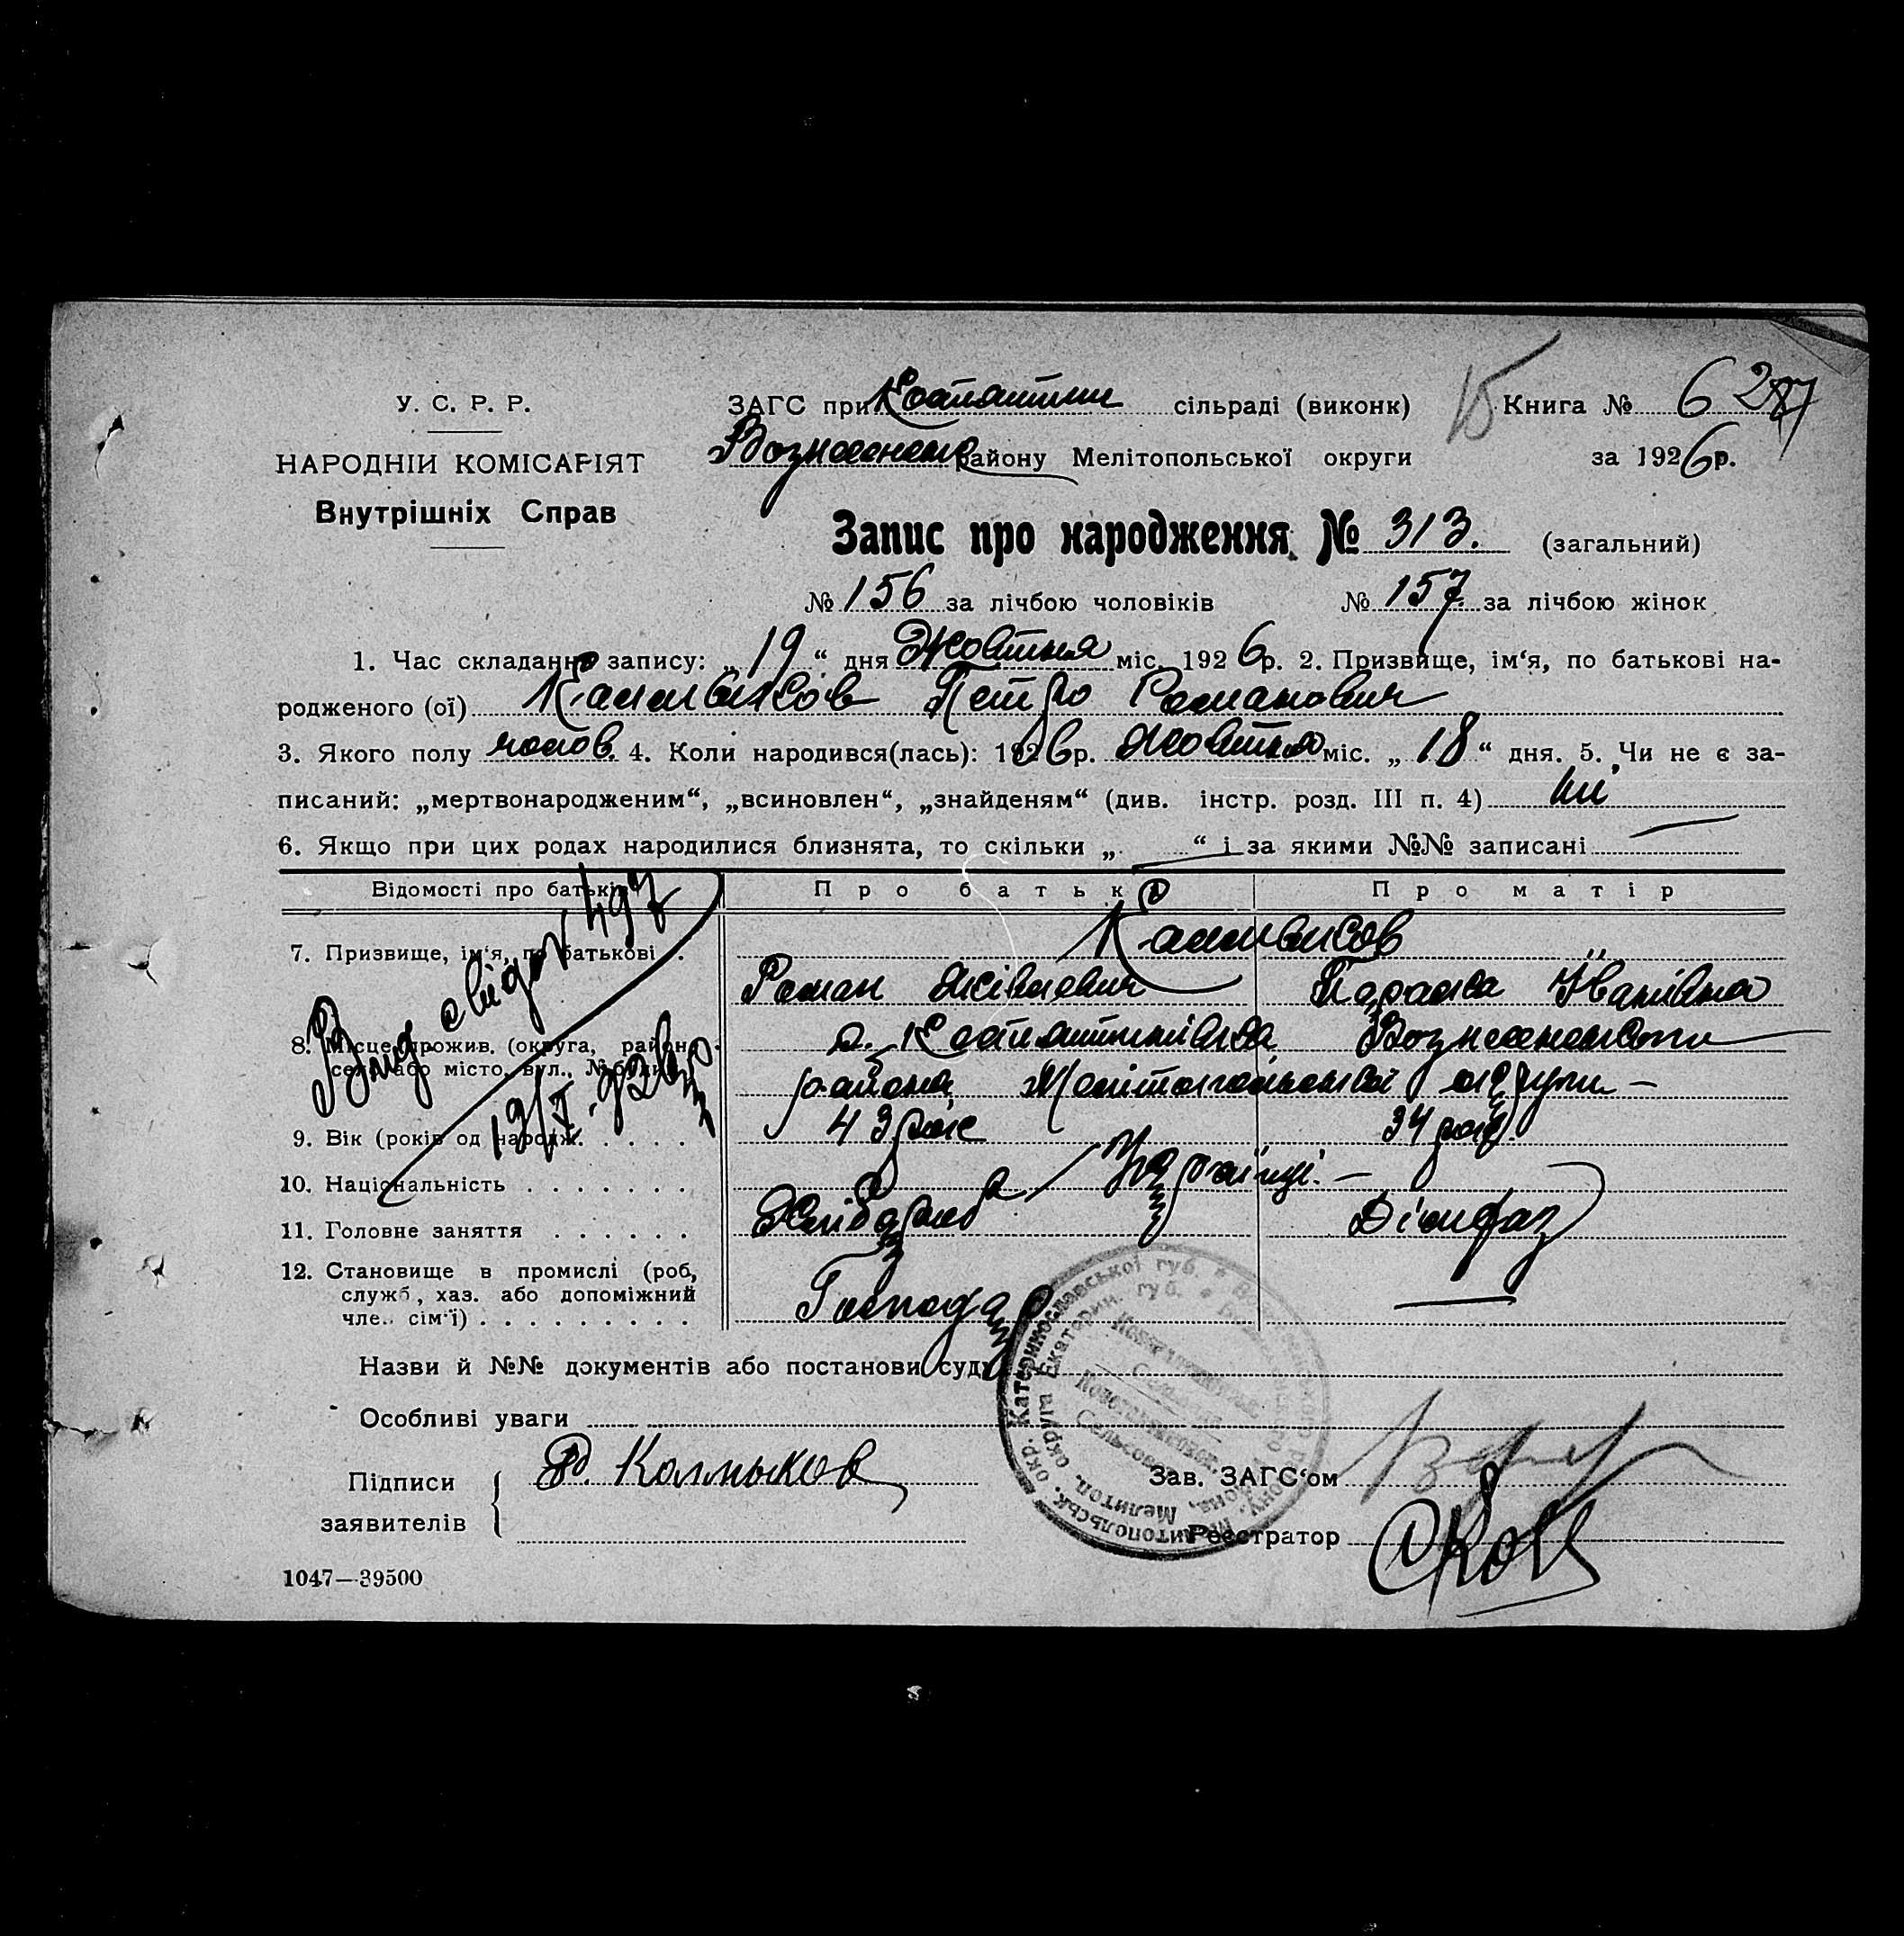 У. С. Р. Р.
НАРОДНІЙ КОМІСАРІЯТ
Внутрішніх Справ
ЗАГС при Костянтин сільраді (виконк)
15 Книга № 6
Вознесенськ району Мелітопольської округи
за 1926 р.
Запис про народження № 313. (загальний)
№ 156 за лічбою чоловіків № 157 за лічбою жінок
1. Час складання запису: „19“ дня Жовтня міс. 1926 р. 2. Призвище, ім‘я, по батькові на-
родженого (ої) Калмиков Петро Романович
3. Якого полу чолов. 4. Коли народився(лась): 1926 р. Жовтня міс. „18“ дня. 5. Чи не є за-
писаний: „мертвонародженим“, „всиновлен“, „знайденям“ (див. інстр. розд. III п. 4) ні
6. Якщо при цих родах народилися близнята, то скільки „ “ і за якими №№ записані
Відомості про батьків Про батька Про матір
7. Призвище, ім‘я, по батькові . Калмиков
Роман Параска Іванівна
8. Місце прожив. (округа, район, с. Костянтинівка, Вознесенського
село або місто, вул., № району Мелітопольської округи –
9. Вік (років од народж. . . . . . 43 рок 34 рок.
10. Національність . . . . . . . Українці. –
11. Головне заняття . . . . . . Хлібороб
12. Становище в промислі (роб,
служб, хаз. або допоміжний
чле.. сім‘ї) . . . . . . . . . Господар
Вид свідоч 497
19/X 926 р
Назви й №№ документів або постанови суду
Особливі уваги
Підписи
заявителів
Р. Колмыков
Зав. ЗАГС‘ом
Реєстратор
1047—39500